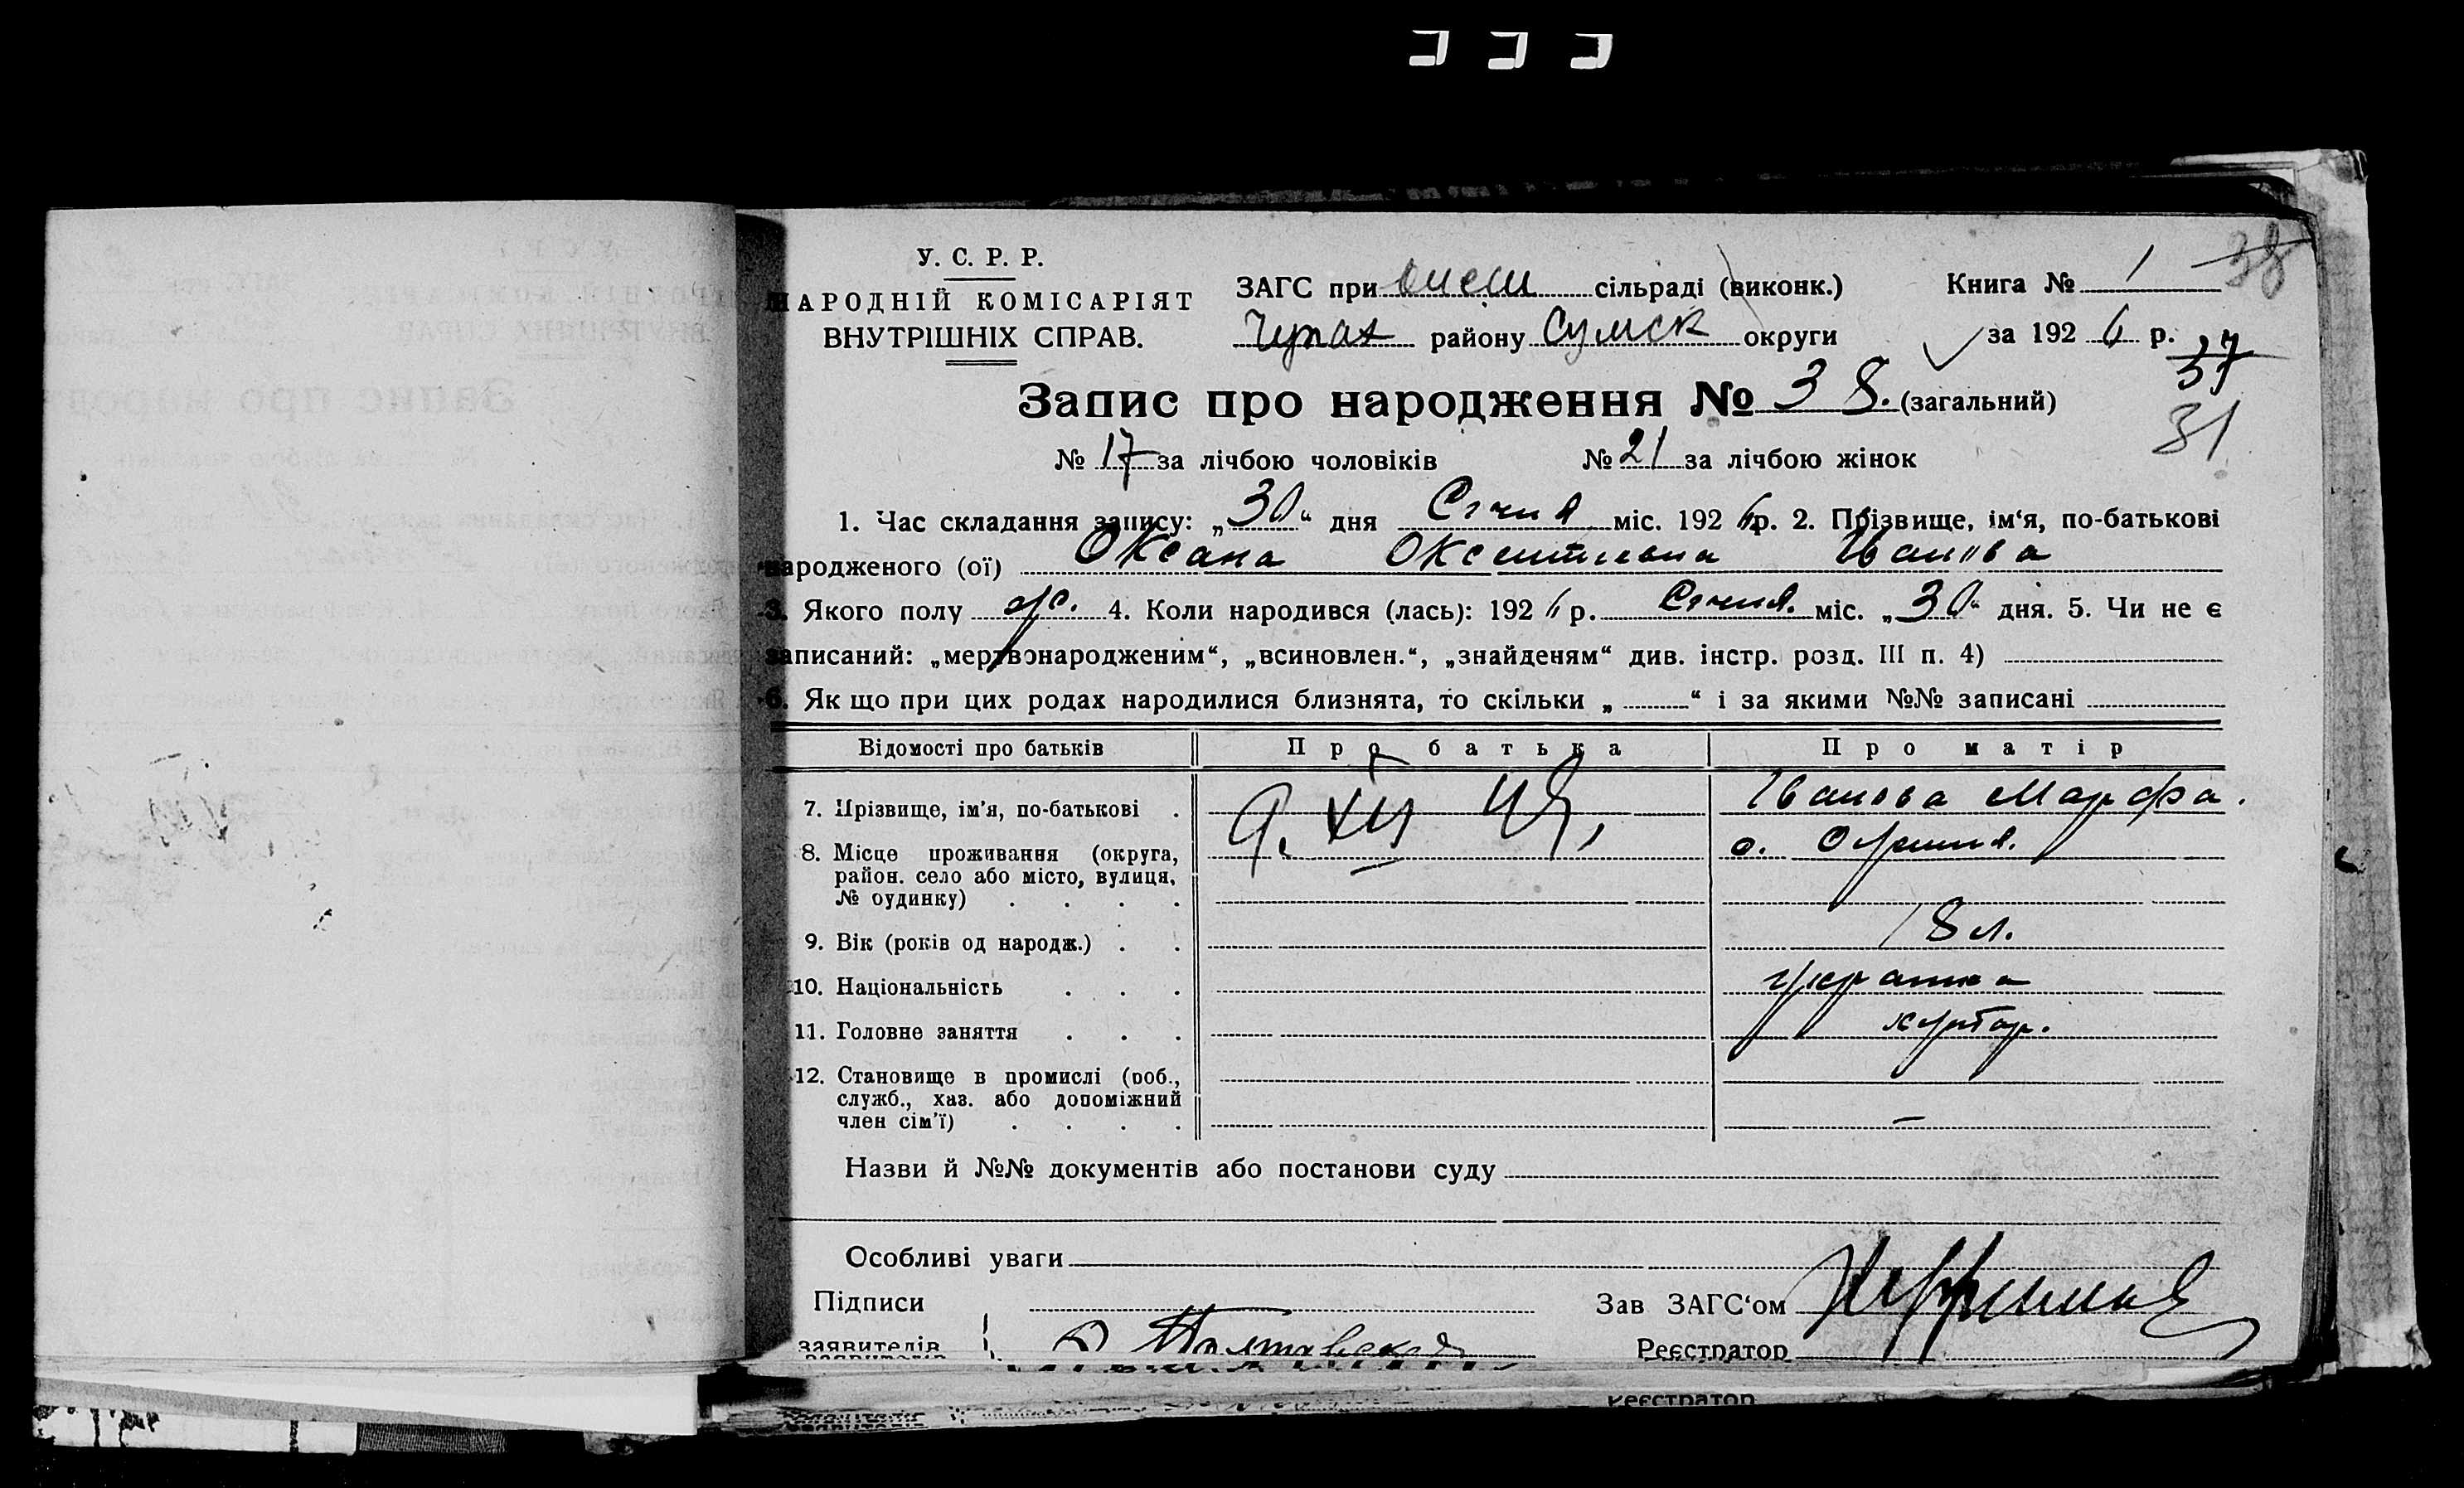 У. С. Р. Р.
НАРОДНІЙ КОМІСАРІЯТ
ВНУТРІШНІХ СПРАВ.
ЗАГС при сільраді (виконк.)
Чупах району Сумск округи
Книга № 1
38
за 192 6 р.
37
31
Запис про народження № 38. (загальний)
№ 17 за лічбою чоловіків № 21 за лічбою жінок
1. Час складання запису: „30“ дня Січня міс. 192 6 р. 2. Прізвище, ім‘я, по-батькові
народженого (ої) Оксана Іванова
3. Якого полу ж. 4. Коли народився (лась): 192 6 р. Січня. міс. „30“ дня. 5. Чи не є
записаний: „мертвонародженим“, „всиновлен.“, „знайденям“ див. інстр. розд. III п. 4)
6. Як що при цих родах народилися близнята, то скільки „ “ і за якими №№ записані
Відомості про батьків Про батька Про матір
7. Прізвище, ім'я, по-батькові . Іванова Марфа.
8. Місце проживання (округа, с.
район. село або місто, вулиця,
№ оудинку) . . . .
9. Вік (років од народж.) . . 18 л.
10. Національність . . . украінка
11. Головне заняття . . .
12. Становище в промислі (роб.,
служб., хаз. або допоміжний
член сім'ї) . . . . –
Назви й №№ документів або постанови суду
Особливі уваги
Підписи Зав ЗАГС‘ом
заявителів Полтавская Реєстратор
Реєстратор